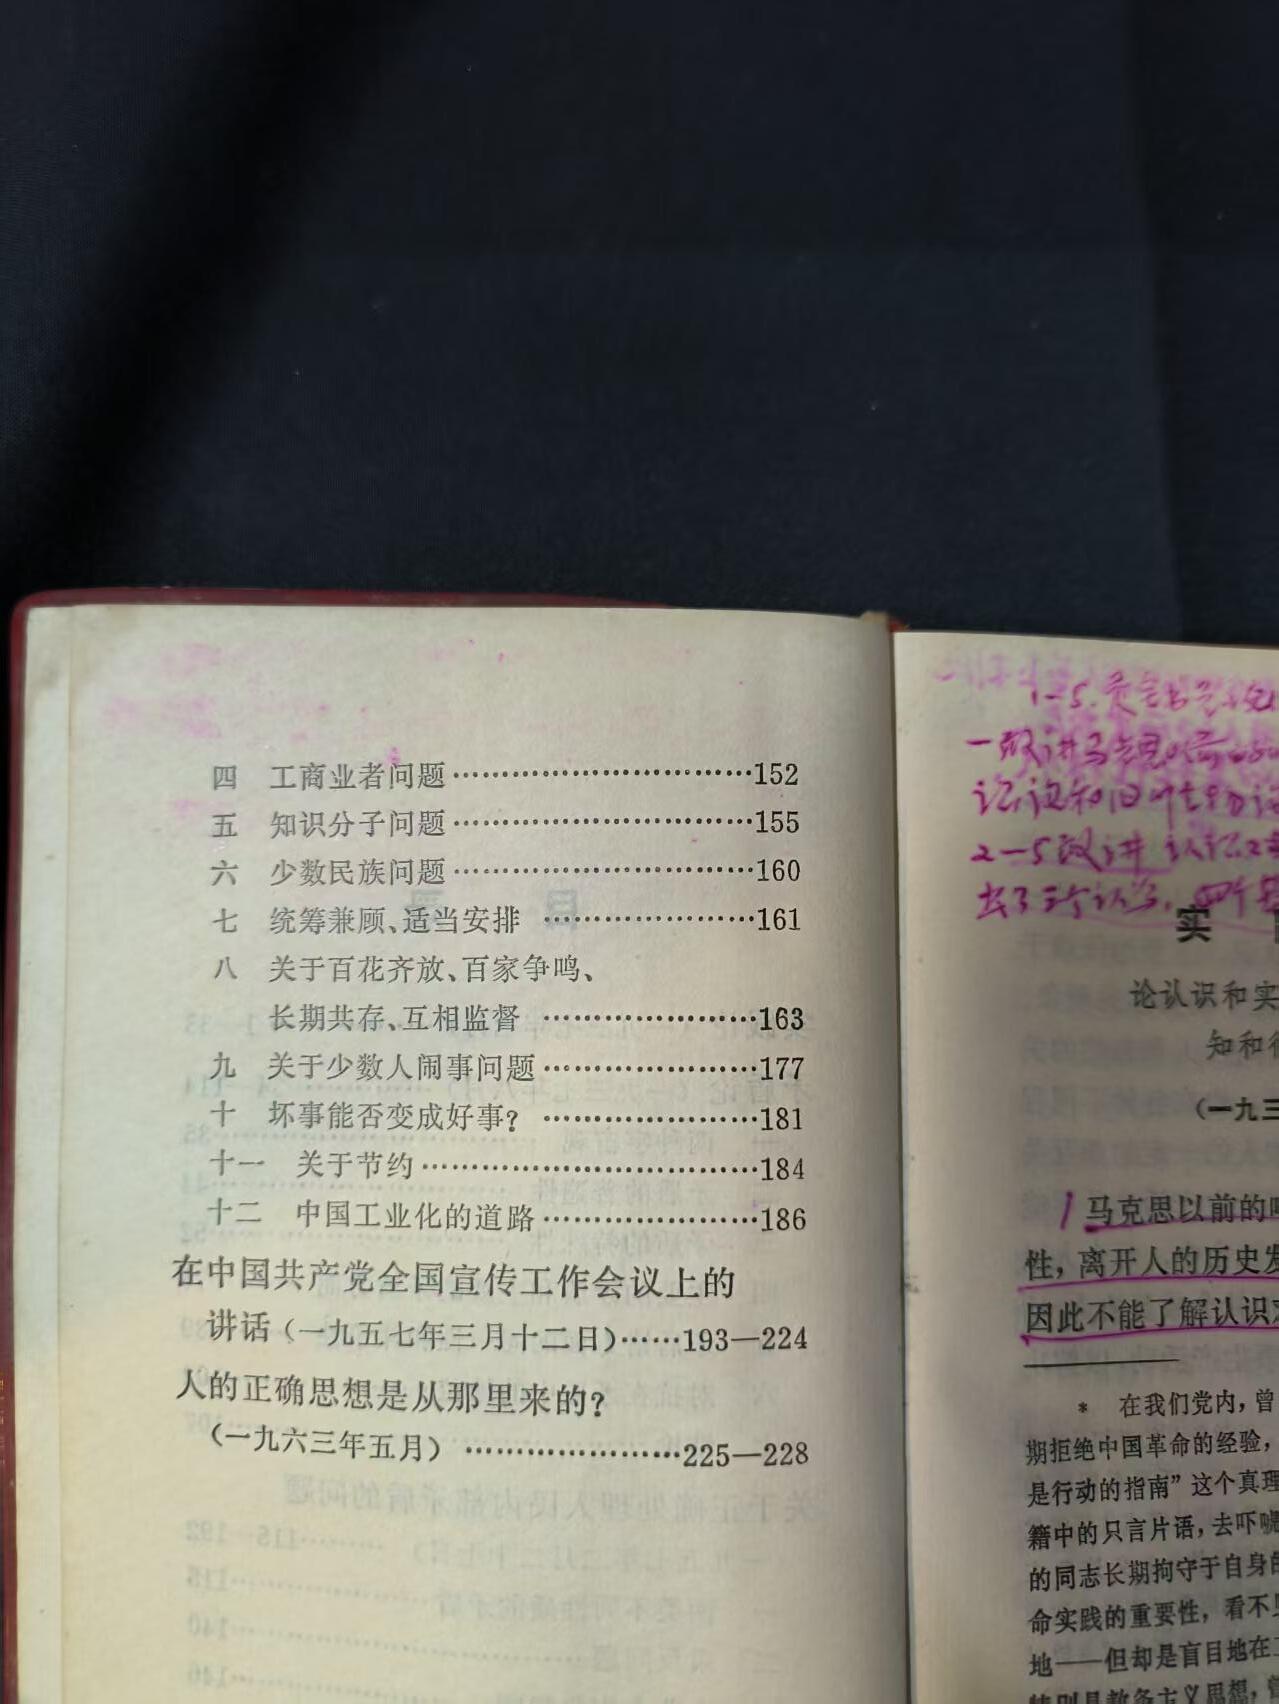 四 工商业者问题……………………………152
五 知识分子问题……………………………155
六 少数民族问题……………………………160
七 统筹兼顾、适当安排 ……………………161
八 关于百花齐放、百家争鸣、
长期共存、互相监督 ……………………163
九 关于少数人闹事问题……………………177
十 坏事能否变成好事？ ……………………181
十一 关于节约………………………………184
十二 中国工业化的道路……………………186
在中国共产党全国宣传工作会议上的
讲话（一九五七年三月十二日）……193—224
人的正确思想是从那里来的？
（一九六三年五月） ……………………225—228
1—5.
一段讲马克思以前
2—5段讲
实
论认识和实
知和
（一九三
1 马克思以前的
性，离开人的历史发
因此不能了解认识
* 在我们党内，曾
期拒绝中国革命的经验，
是行动的指南”这个真理
籍中的只言片语，去吓唬
的同志长期拘守于自身的
命实践的重要性，看不见
地——但却是盲目地在
特别是教条主义思想，曾